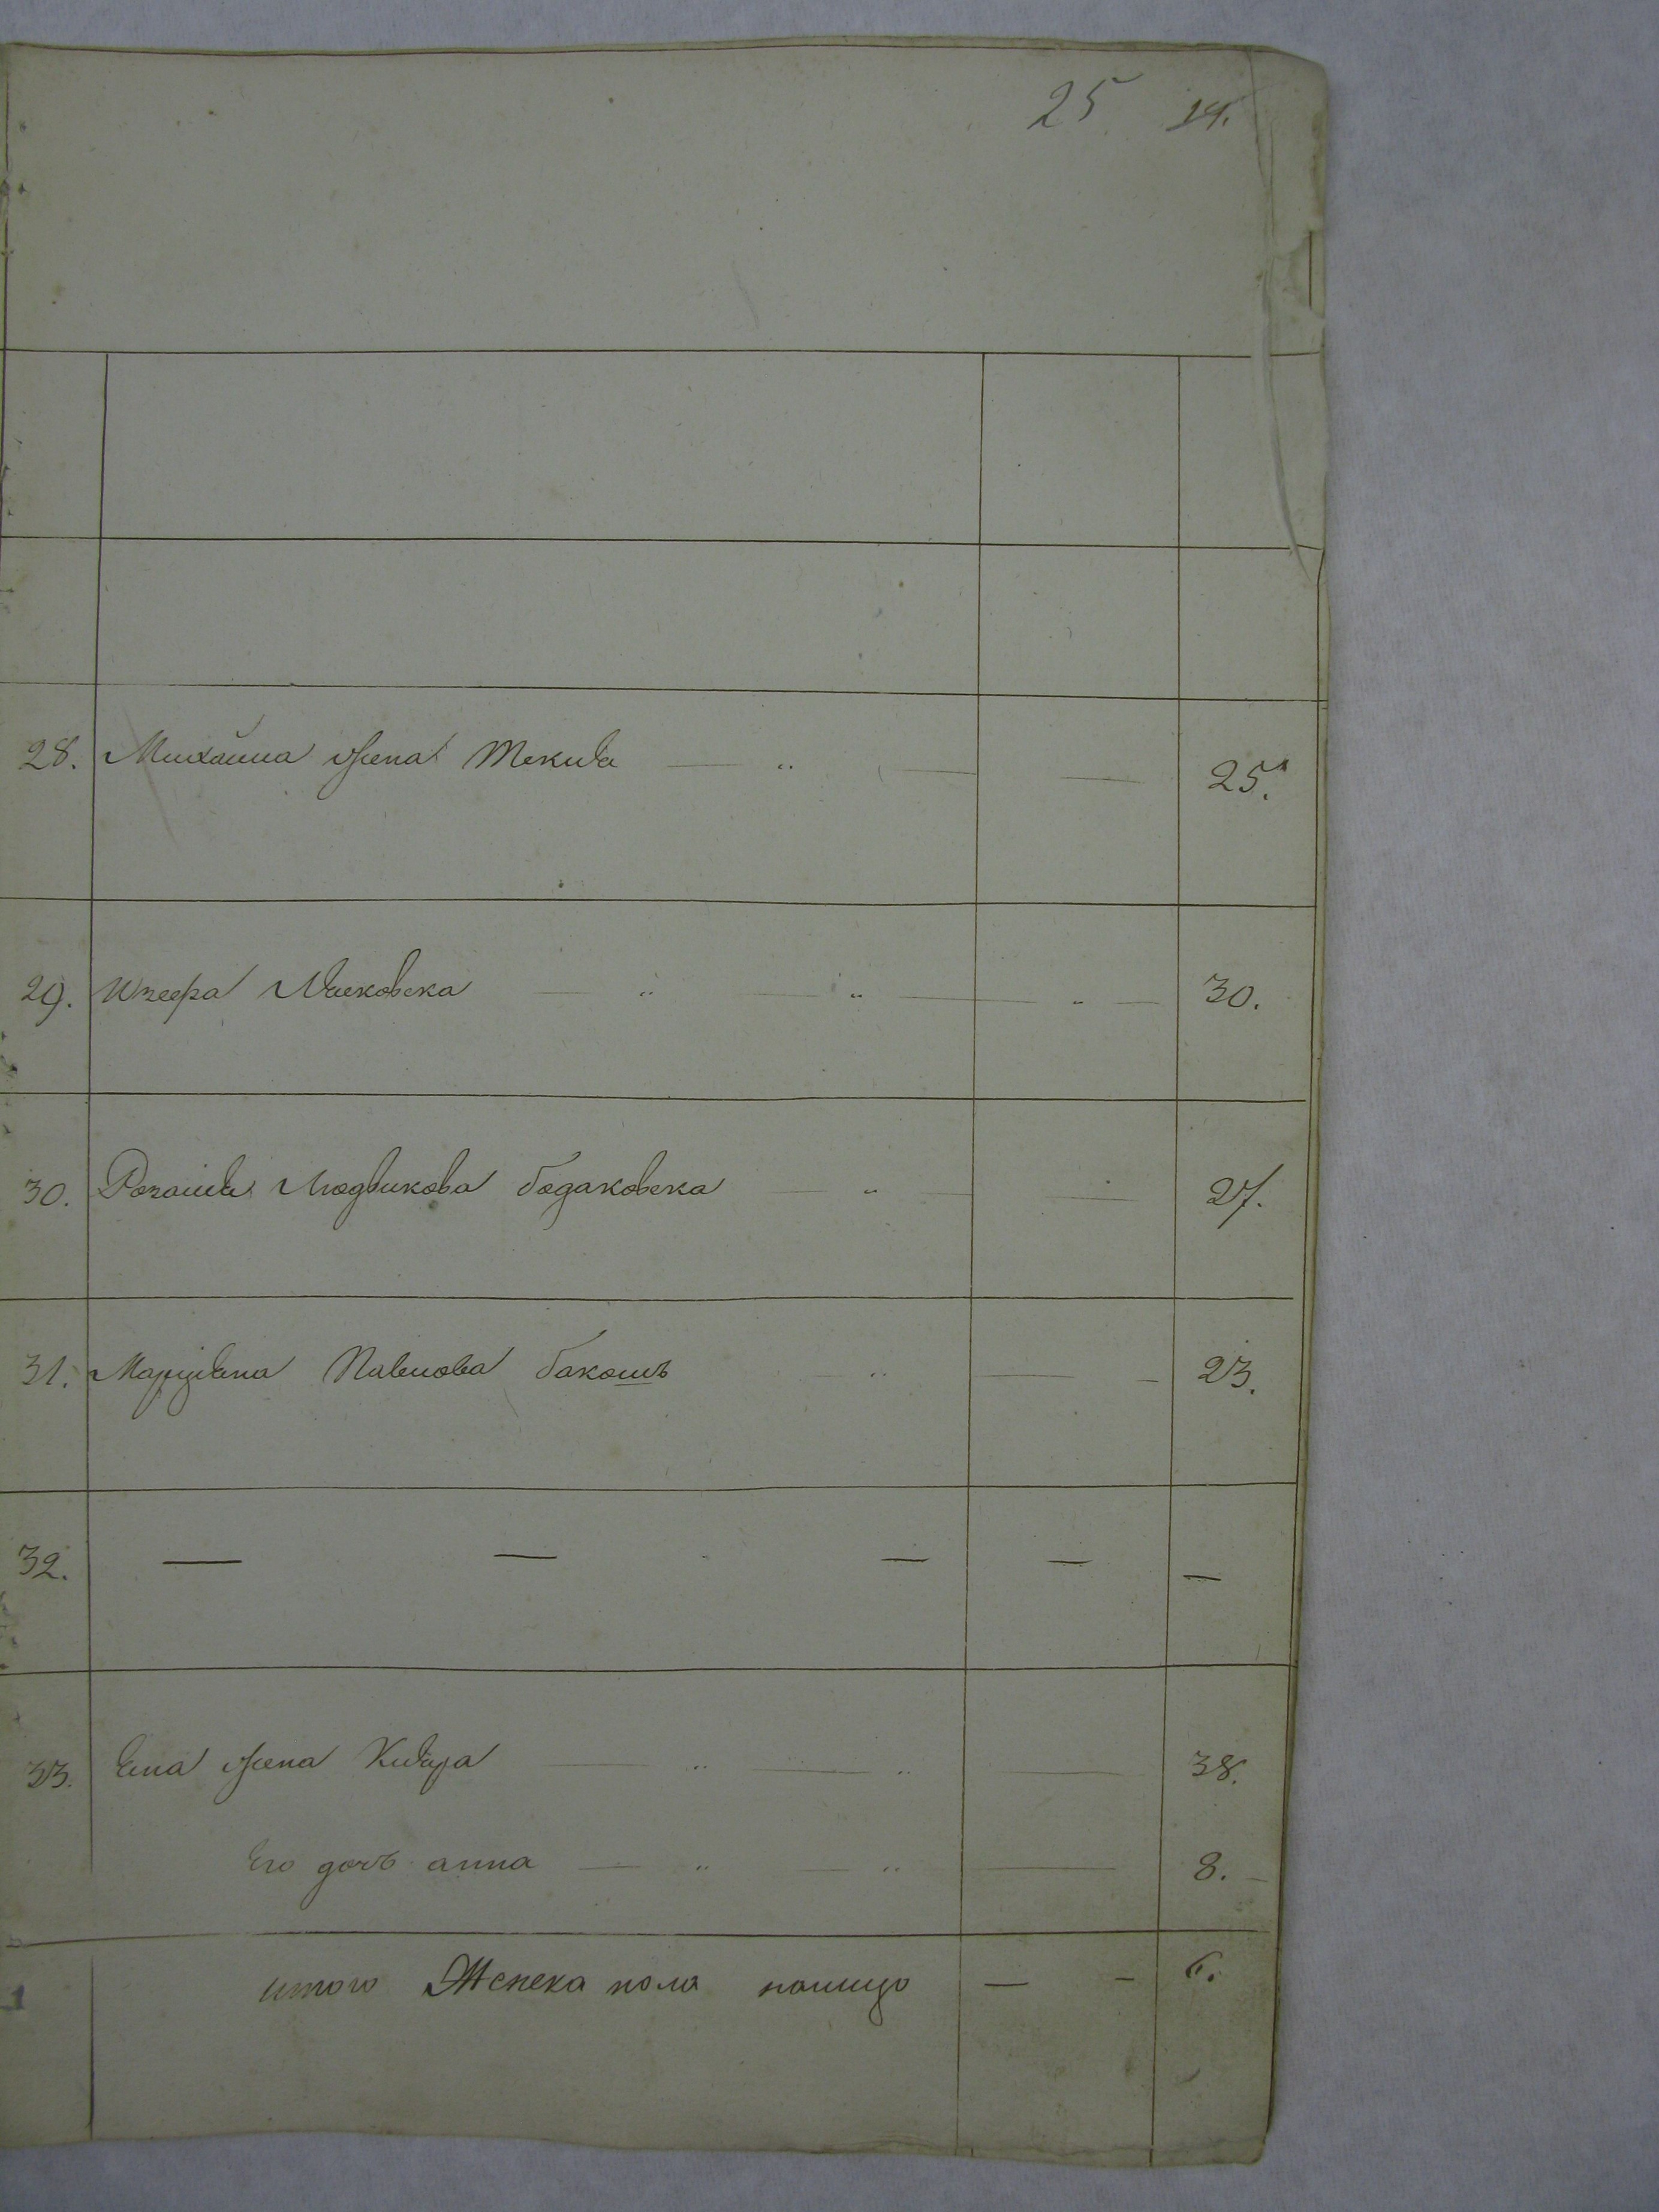 25 14.
28. Михалина жена Текила — „ — — 25.
29. Изефа Маековска — „ — „ — „ — 30.
30. Розалия Людвикова Бодаковска — „ — — 27.
31. Марцыяна Павлова Бакошъ „ — — 23.
32. — — — — —
33. Ева жена — „ — „ — 38.
Его дочь анна — „ — „ — 8.
итого Женска пола налицо — — 6.